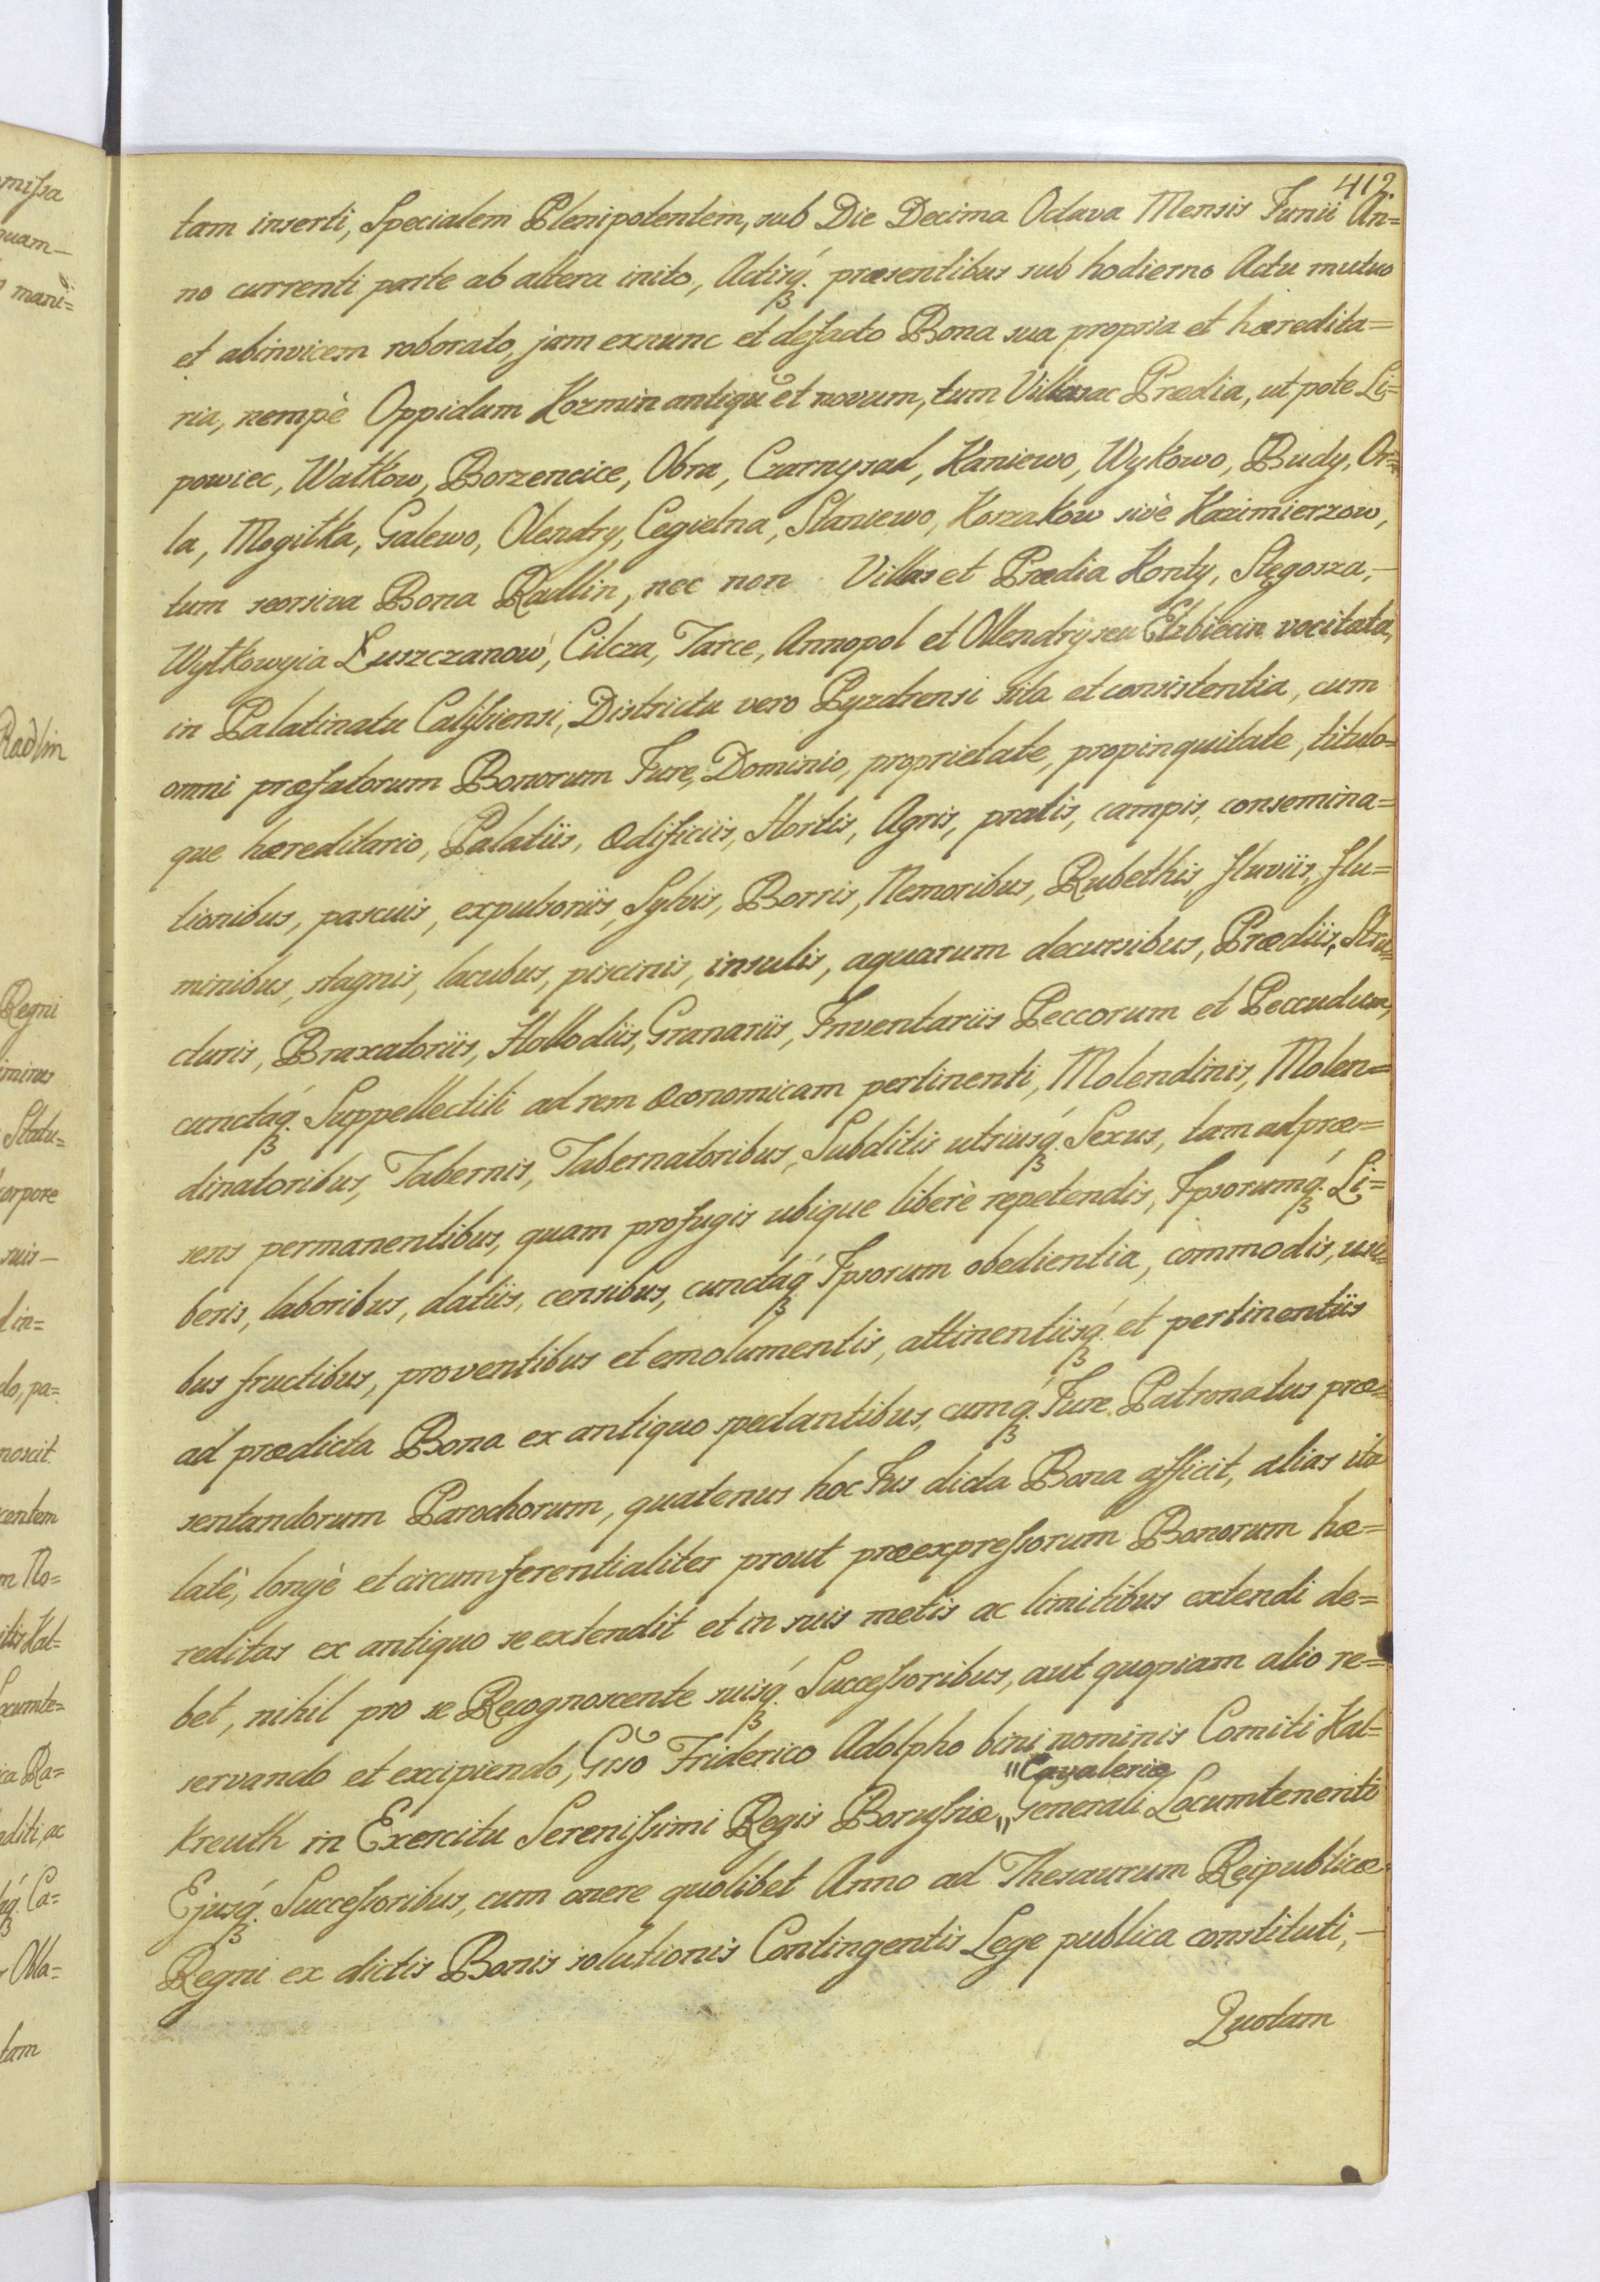 412.
tam inserti, Specialem Plenipotentem, sub Die Decima Octava Mensis Junii An=
no currenti parte ab altera inito, Actisq́ꝫ. præsentibus sub hodierno Actu mutuo
et abinvicem roborato, jam exnunc et defacto Bona sua propria et hæredita=
ria, nempè Oppidum Kozmin antiqũ et novum, tum Villas ac Prædia, ut pote Li=
powiec, Wałkow, Borzencice, Obra, Czarnysad, Kaniewo, Wykowo, Budy, Or=
la, Mogiłka, Galewo, Olendry, Cegielna, Staniewo, Korzakow sivè Kazimierzow,
tum seorsiva Bona Radlin, nec non Villas et Prædia Konty, Stęgosza,-
Wyłkowyia Łuszczanow, Cilcza, Tarce, Annopol et Ollendry seu Elzbiecin vocitata,
in Palatinatu Calisiensi, Districtu vero Pyzdrensi sita et consistentia, cum
omni præfatorum Bonorum Jure, Dominio, proprietate, propinquitate, titulo=
que hæreditario, Palatiis, ædificiis, Hortis, Agris, pratis, campis, consemina=
tionibus, pascuis, expulsoriis, Sylvis, Borris, Nemoribus, Rubethis fluviis, flu=
minibus, stagnis, lacubus, piscinis, insulis, aquarum decursibus, Prædiis, Stru=
cturis, Braxatoriis, Hollodiis, Granariis, Inventariis Peccorum et Peccudum,
cunctaq́ꝫ. Suppellectili ad rem œconomicam pertinenti, Molendinis, Molen=
dinatoribus, Tabernis, Tabernatoribus, Subditis utriusq́ꝫ. Sexus, tam ad præ=
sens permanentibus, quam profugis ubique liberè repetendis, Ipsorumq́ꝫ. Li=
beris, laboribus, datiis, censibus, cunctaq́ꝫ Ipsorum obedientia, commodis, usi=
bus fructibus, proventibus et emolumentis, attinentiisq́ꝫ. et pertinentiis
ad prædicta Bona ex antiquo spectantibus, cumq́ꝫ. Jure Patronatus præ=
sentandorum Parochorum, quatenus hoc Jus dicta Bona afficit, alias ita
latè, longè et circumferentialiter prout præexpressorum Bonorum hæ=
reditas ex antiquo se extendit et in suis metis ac limitibus extendi de=
bet, nihil pro se Recognoscente suisq́ꝫ. Successoribus, aut quopiam alio re=
servando et excipiendo, Gr̃so Friderico Adolpho bini nominis Comiti Kal=
"Cavaleriæ
kreuth in Exercitu Serenissimi Regis Borussiæ "Generali Locumtenenti
Ejusq́ꝫ. Successoribus, cum onere quolibet Anno ad Thesaurum Reipublicæ
Regni ex dictis Bonis solutionis Contingentis Lege publica constituti,-
Quotam
missa
quam-
mani=
Radlin
Regni
Statu=
corpore
suis-
do, pa=
noscit
centem
m No=
Kal=
ocumte=
ca Ra=
diti, ac
Ca=
Obla=
tam